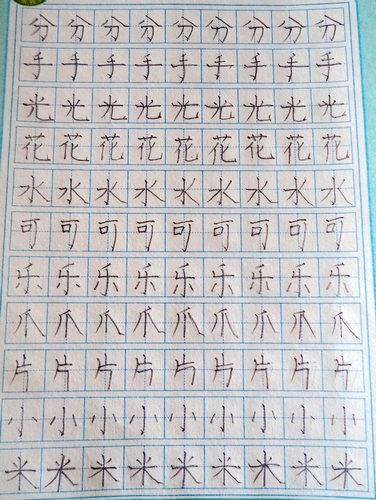 分分分分分分分分分
手手手手手手手手手
光光光光光光光光光
花花花花花花花花花
水水水水水水水水水
可可可可可可可可可
乐乐乐乐乐乐乐乐乐
爪爪爪爪爪爪爪爪爪
片片片片片片片片片
小小小小小小小小小
米米米米米米米米米